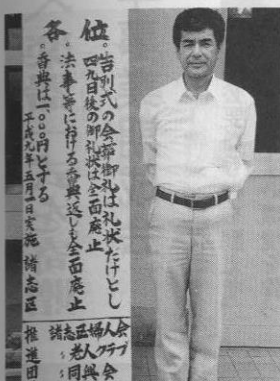 各位
・告別式の会葬御礼は礼状だけとし
四九日後の御礼状は全面廃止
・法事等における香典返しも全面廃止
・香典は一、〇〇〇円とする
平成九年五月一日実施 諸志区
諸志区婦人会
〃 老人クラブ
〃 同興会
推進団